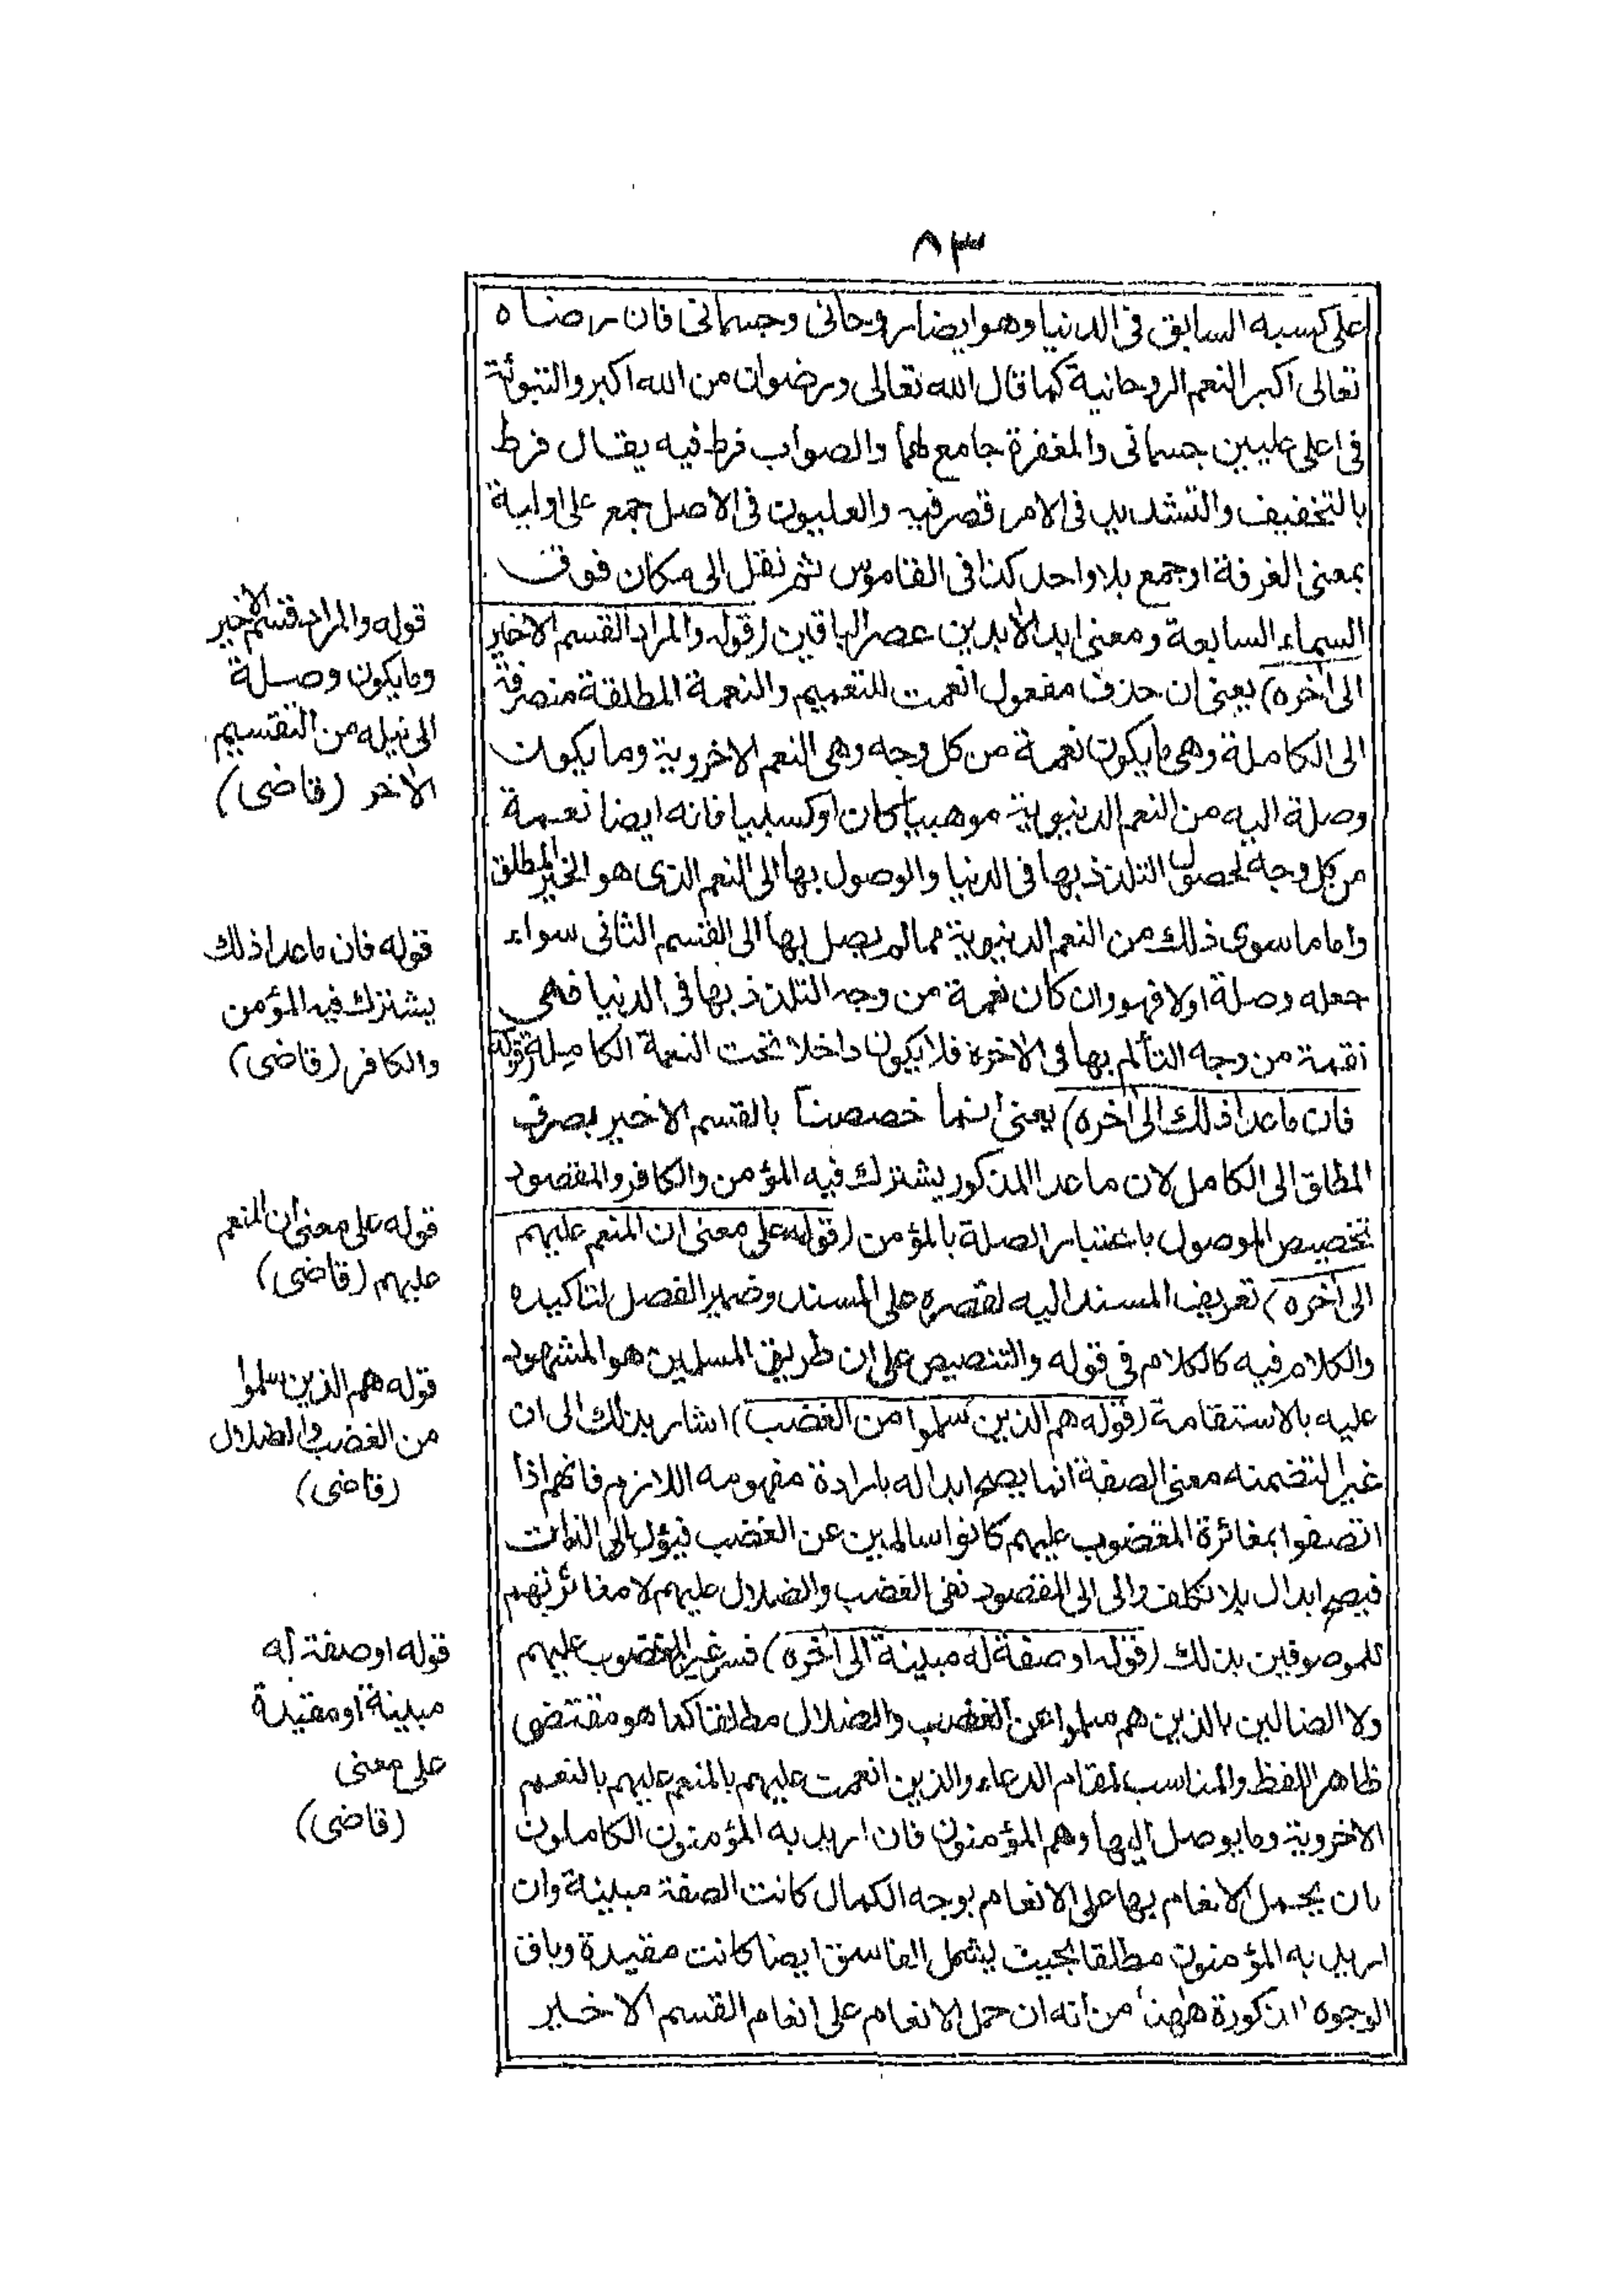 ٨٣
على كسبه السابق فى الدنيا وهو ايضا روحانى وجسمانى فان رضاه
تعالى اكبر النعم الروحانية كما قال الله تعالى ورضوان من الله اكبر والتبوئة
فى اعلى عليين جسمانى والمغفرة جامع لهما والصواب فرط فيه يقال فرط
بالتخفيف والتشديد فى الامر قصر فيه والعليون فى الاصل جمع على او لية
بمعنى الغرفة او جمع بلا واحد كذا فى القاموس ثم نقل الى مكان فوق
السماء السابعة ومعنى ابد الأبدين عصر الباقين (قوله والمراد القسم الاخير
الى أخره) يعنى ان حذف مفعول انعمت للتعميم والنعمة المطلقة منصرفة
الى الكاملة وهى ما يكون نعمة من كل وجه وهى النعم الاخروية وما يكون
وصلة اليه من النعم الدنيوية موهبيا كان او كسبيا فانه ايضا نعمة
من كل وجه لحصول التلذذ بها فى الدنيا والوصول بها الى النعم الذى هو الخير المطلق
واما ما سوى ذلك من النعم الدنيوية مما لم يصل بها الى القسم الثانى سواء
جعله وصلة اولا فهو وان كان نعمة من وجه التلذذ بها فى الدنيا فهى
نقمة من وجه التألم بها فى الاخرة فلا يكون داخلا تحت النعمة الكاملة (قوله
فان ما عدا ذلك الى أخره) يعنى انما خصصنا بالقسم الاخير بصرف
المطلق الى الكامل لان ما عدا المذكور يشترك فيه المؤمن والكافر والمقصود
تخصيص الموصول باعتبار الصلة بالمؤمن (قوله على معنى ان المنعم عليهم
الى أخره) تعريف المسند اليه لقصره على المسند وضمير الفصل لتاكيده
والكلام فيه كالكلام فى قوله والتنصيص على ان طريق المسلمين هو المشهود
عليه بالاستقامة (قوله هم الذين سلموا من الغضب) اشار بذلك الى ان
غير لتضمنه معنى الصفة انما يصح ابداله بارادة مفهومه اللازم فانهم اذا
اتصفوا بمغائرة المغضوب عليهم كانوا سالمين عن الغضب فيؤل الى الذات
فيصح ابدال بلا تكلف والى الى المقصود نفى الغضب والضلال عليهم لا مغائرتهم
للموصوفين بذلك (قوله او صفة له مبينة الى أخره) فسر غير المغضوب عليهم
ولا الضالين بالذين هم سلموا عن الغضب والضلال مطلقا كما هو مقتضى
ظاهر اللفظ والمناسب لمقام الدعاء والذين انعمت عليهم بالمنعم عليهم بالنعم
الاخروية وما يوصل اليها وهم المؤمنون فان اريد به المؤمنون الكاملون
بان يحمل الانعام بها على الانعام بوجه الكمال كانت الصفة مبينة وان
اريد به المؤمنون مطلقا بحيث يشمل الفاسق ايضا كانت مقيدة وباقى
الوجوه المذكورة ههنا من انه ان حمل الانعام على انعام القسم الاخير
قوله والمراد قسم الاخير
وما يكون وصلة
الى نيله من التقسيم
الاخر (قاضى)
قوله فان ما عدا ذلك
يشترك فيه المؤمن
والكافر (قاضى)
قوله على معنى ان المنعم
عليهم (قاضى)
قوله هم الذين سلموا
من الغضب والضلال
(قاضى)
قوله او صفة له
مبينة او مقيدة
على معنى
(قاضى)